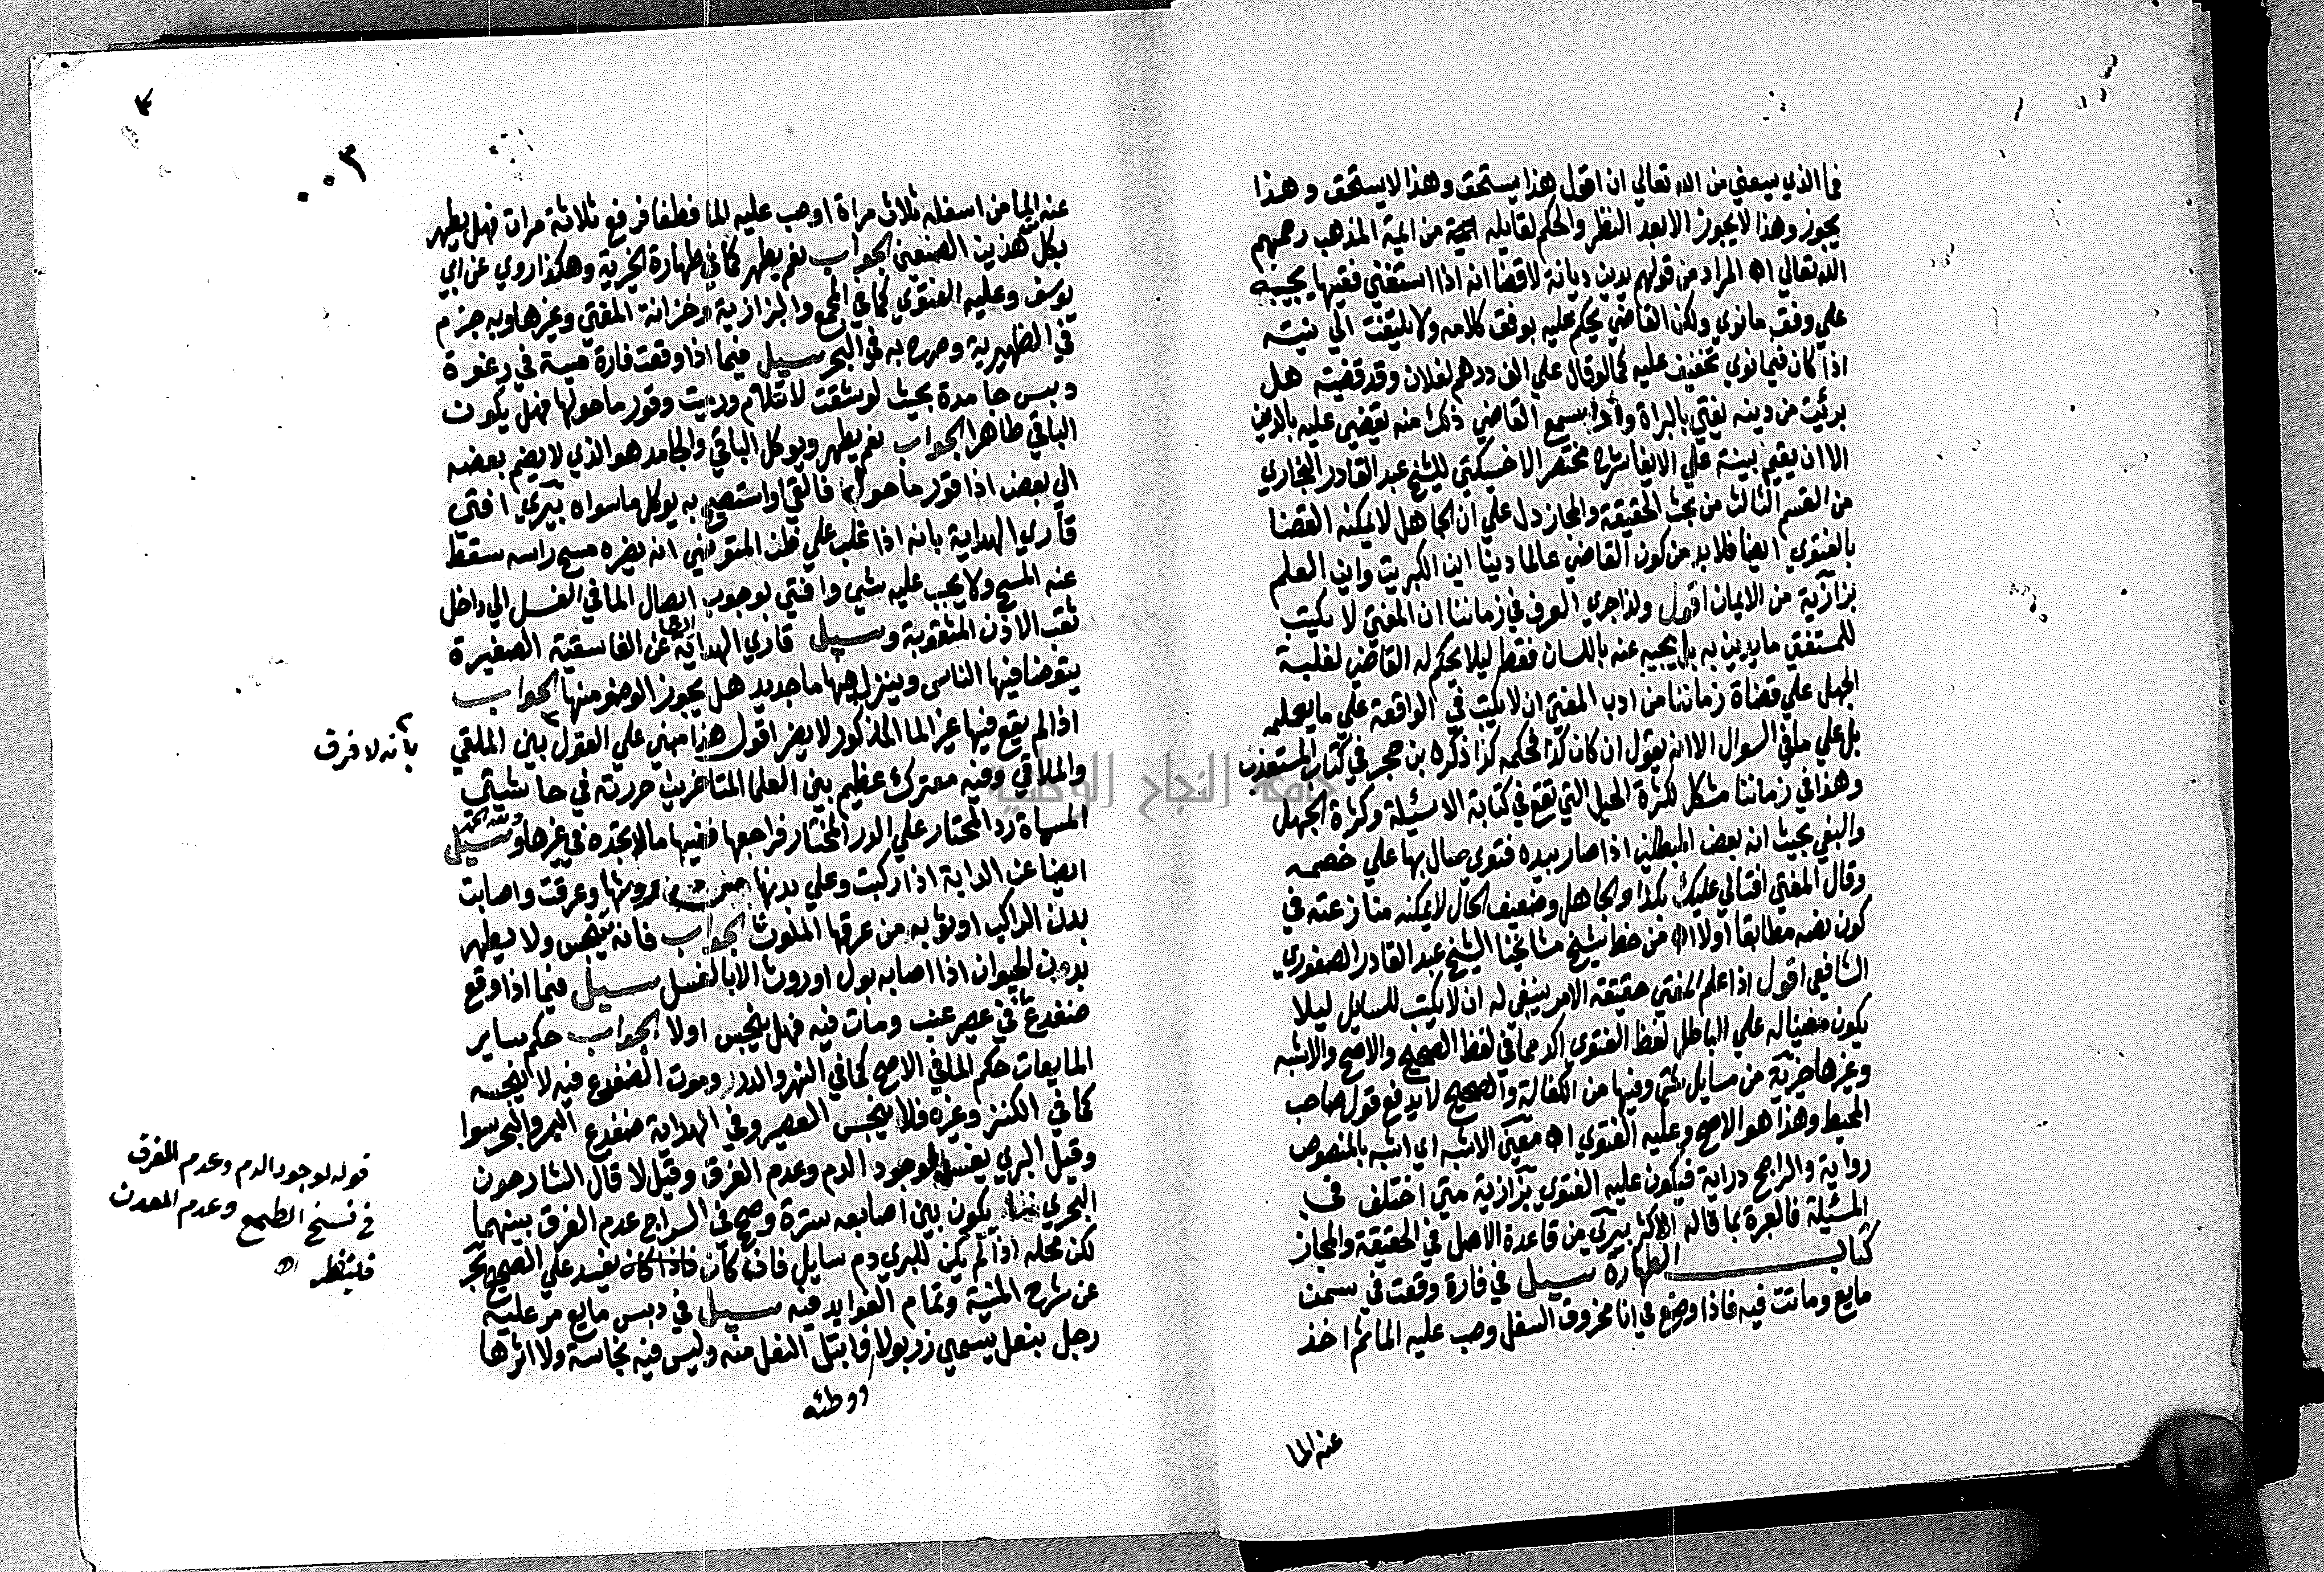 فما الذي يسعني من الله تعالي ان اقول هذا يستحق وهذا لا يستحق وهذا
يجوز وهذا لا يجوز الا بعد النظر والحكم لقايله ائمة من ايمة المذهب رحمهم
الله تعالي اه المراد من قولهم يدين ديانة لا قضا انه اذا استفتي فقيها يجيبه
علي وفق ما نوي ولكن القاضي يحكم عليه بوفق كلامه ولا يلتفت الي نيته
اذا كان فيما نوي تخفيف عليه كما لو قال علي الف درهم لفلان وقد قضيته هل
برئت من دينه يفتي بالبراة واذا سمع القاضي ذلك منه يقضي عليه بالدين
الا ان يقيم بينة علي الايفا شرح مختصر الاخسيكتي للشيخ عبد القادر البخاري
من القسم الثالث من بحث الحقيقة والمجاز دل علي ان الجاهل لا يمكنه القضا
بالفتوي ايضا فلا بد من كون القاضي عالما دينا اين الكبريت واين العلم
بزازية من الايمان اقول ولذا جري العرف في زماننا ان المفتي لا يكتب
للمستفتي ما يدين به بل يجيبه عنه باللسان فقط ليلا يحكم له القاضي لغلبة
الجهل علي قضاة زماننا من ادب المفتي ان لا يكتب في الواقعة علي ما يعلمه
بل علي ما في السوال الا انه يقول ان كان كذا فحكمه كذا ذكره بن حجر في كتاب المستعذب
وهذا في زماننا مشكل لكثرة الحيل التي تقع في كتابة الاسيلة وكثرة الجهل
والبغي بحيث انه بعض المبطلين اذا صار بيده فتوي صال بها علي خصمه
وقال المفتي افتا لي عليك بكذا والجاهل وضعيف الحال لا يمكنه منازعته في
كون نصه مطابقا اولا اه من خط شيخ مشايخنا الشيخ عبد القادر الصفوري
الشافعي اقول اذا علم المفتي حقيقة الامر ينبغي له ان لا يكتب للسايل ليلا
يكون معينا له علي الباطل لفظ الفتوي اكد مما في لفظ الصحيح والاصح والاشبه
وغيرها خيرية من مسايل شتي وفيها من الكفالة والصحيح لا يدفع قول صاحب
المحيط وهذا هو الاصح وعليه الفتوي اه معني الاشبه اي اشبه بالمنصوص
رواية والراجح دراية فيكون عليه الفتوي بزازية متي اختلف في
المسئيلة فالعبرة بما قاله الاكثر بيري من قاعدة الاصل في الحقيقة والمجاز
كتاب الطهارة سيل في فارة وقعت في سمن
مايع وماتت فيه فاذا وضع في انا مخروق السفل وصب عليه الما ثم اخذ
عنه الما
٠٠٣
عنه الما من اسفله ثلاث مراة او صب عليه الما فطفا فرفع ثلاثة مرات فهل يطهر
بكل هذين الصنعين الجواب نعم يطهر كما في طهارة الخيرية وهكذا روي عن ابي
يوسف وعليه الفتوي كما في المجمع والبزازية وخزانة المفتي وغيرها وبه جزم
في الظهيرية وصرح به في البحر سيل فيما اذا وقعت فارة ميتة في رغوة
دبس جامدة بحيث لو شقت لا تتلام ورميت وقور ما حولها فهل يكون
الباقي طاهرا الجواب نعم يطهر ويوكل الباقي والجامد هو الذي لا يضم بعضه
الي بعض اذا قور ما حولها فالقي او استصبح به يوكل ما سواه بيري افتي
قاري الهداية بانه اذا غلب علي ظن المتوضي انه يضره مسح راسه سقط
عنه المسح ولا يجب عليه شي وافتي بوجوب ايصال الما في الغسل الي داخل
ثقب الاذن المثقوبة وسيل قاري الهداية ايضا عن الفاسقية الصغيرة
يتوضا فيها الناس وينزل فيها ما جديد هل يجوز الوضو منها الجواب
اذا لم يقع فيها غير الما المذكور لا يضر اقول هذا مبني علي القول بين الملقي
بانه لا فرق
والملاقي وفيه معترك عظيم بين العلما المتاخرين حررته في حاشيتي
المسماة رد المحتار علي الدر المختار فراجعها ففيها ما لا تجده في غيرها وسيل
ايضا عن الدابة اذا ركبت وعلي بدنها روثها وعرقت واصابت
بدن الراكب او ثوبه من عرقها الملوث الجواب فانه ينجس ولا يطهر
بدن الحيوان اذا اصابه بول او روث الا بالغسل سيل فيما اذا وقع
ضفدع في عصير عنب ومات فيه فهل ينجس اولا الجواب حكم ساير
المايعات حكم الما في الاصح كما في النهر والدرر وموت الضفدع فيه لا ينجسه
كما في الكنز وغيره فلا ينجس العصير وفي الهداية ضفدع البر والبحر سوا
وقيل البري يفسد لوجود الدم وعدم الفرق وقيل لا قال الشارحون
البحري يكون بين اصابعه سترة وصح في السراج عدم الفرق بينهما
لكن محله اذا لم يكن للبري دم سايل فان كان يفسد علي الصحيح بحر
عن شرح المنية وتمام الفوايد فيه سيل في دبس مايع مر عليه
رجل بنعل يسمي زربولا فابتل النعل منه وليس فيه نجاسة ولا اثرها
ووطئه
قوله لوجود الدم وعدم الفرق
في نسخ الطبع وعدم المعدن
فلينظر اه